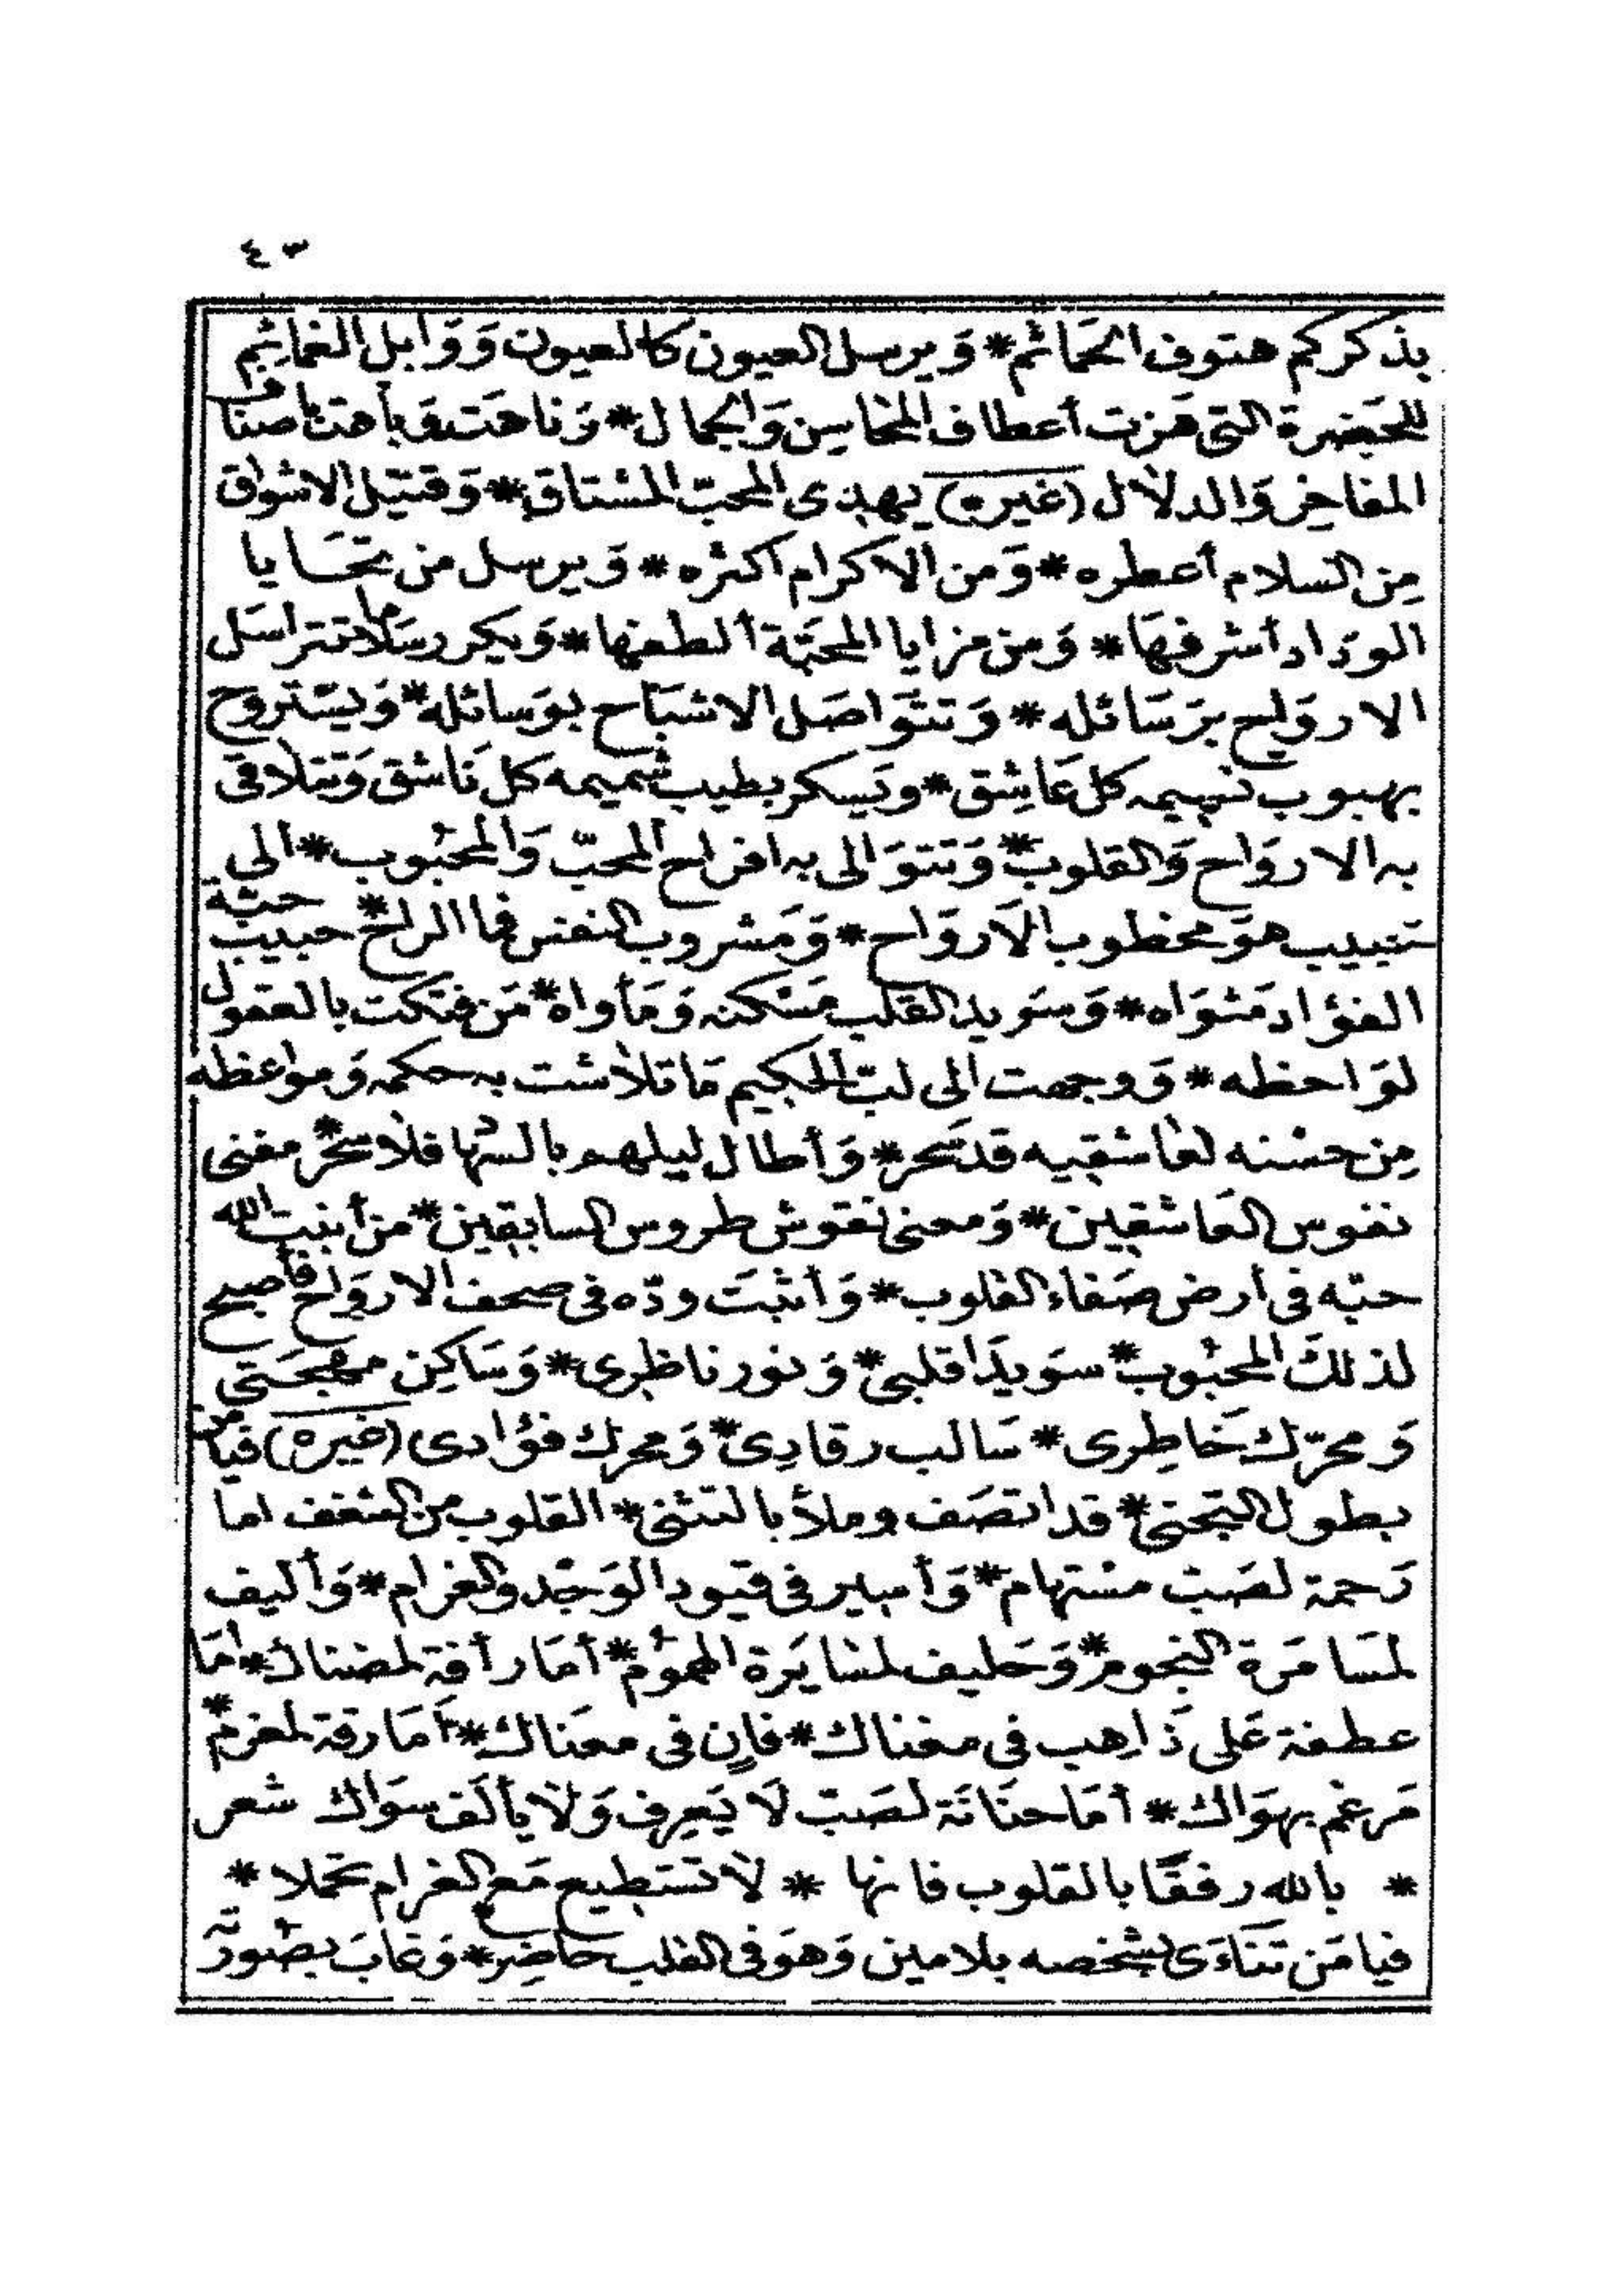 ٤٣
بذكركم هتوف الحَمائم * وَيرسل العيون كالعيون وَوَابل الغمائم
للحَضرة التى هَزت أعطاف المحاسِن وَالجمال * وَناحَت وَباحت
المفاخِر وَالدلال (غيره) يهدى المحبّ المشتاق * وَقتيل الاشواق
مِن السلام أعطره * وَمن الاكرام اكثره * وَيرسل من تحَايا
الودَاد أشرفهَا * وَمن مزايا المحَبّة ألطفها * وَيكرر سَلاما تتراسَل
الاروَاح برَسَائله * وَتتوَاصَل الاشبَاح بوَسائله * وَيسْتروح
بهبوب نسِيمه كل عَاشِق * وَيَسكر بطيب شميمه كل نَاشق وَتتلاقى
به الاروَاح وَالقلوب * وَتتوَالى به افراح المحبّ وَالمحْبُوب * الى
حبيب هوَ مخطوب الاَروَاح * وَمَشروب النفس فما الراح * حبيب حبّة
الفؤاد مَثوَاه * وَسوَيد القلب مَسْكنه وَمَأواه * مَن فتكت بالعقول
لوَاحظه * وَوجهت الى لبّ الحكيم مَا تلاشت به حكمه وَمواعظه
مِن حسْنه لعَاشقِيه قد سَحر * وَأطال ليلهم بالسّها فلا سَحَر مغنى
نفوس العَاشقِين * وَمعنى نقوش طروس السابقِين * من أنبت الله
حبّه فى أرض صَفاء القلوب * وَأثبَت ودّه فى صحف الاروَاح فأصبح
لذلكَ المحْبُوب * سوَيدَا قلبى * وَنور ناظِرى * وَسَاكِن مهجَتى
وَمحرّك خَاطِرى * سَالب رقادِى * وَمحرك فؤادى (غيره) فيامن
بطول التجنى * قد اتصَف وملأ بالتثنى * القلوب من الشغف اما
رَحمة لصَبّ مسْتهام * وَأسير فى قيود الوَجْد وَالغرام * وَأليف
لمسَامَرة النجوم * وَحَليف لمسَايَرة الهمُوم * أمَا رأفة لمضناك * امَا
عطفة عَلى ذَاهِب فى مغناك * فانٍ فى معنَاك * أمَا رقة لمغرم *
مَرغم بهوَاك * أمَا حنَانَة لصَبّ لَا يَعرِف وَلَا يألَف سوَاك شعر
* بالله رفقًا بالقلوب فانها * لَا تسْتطيع مَع الغرام تحملا *
فيا مَن تنَاءَى بشخصه بلا مين وَهوَ فى القلب حاضِر * وَغابَ بصُورته